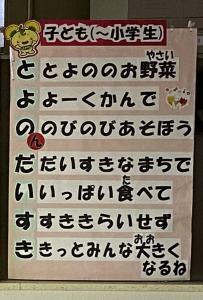 子ども(〜小学生)
ととよののお野菜
やさい
よよーくかんで
ののびのびあそぼう
ん
だだいすきなまちで
いいっぱい食べて
た
すすききらいせず
ききっとみんな大きく
おお
なるね